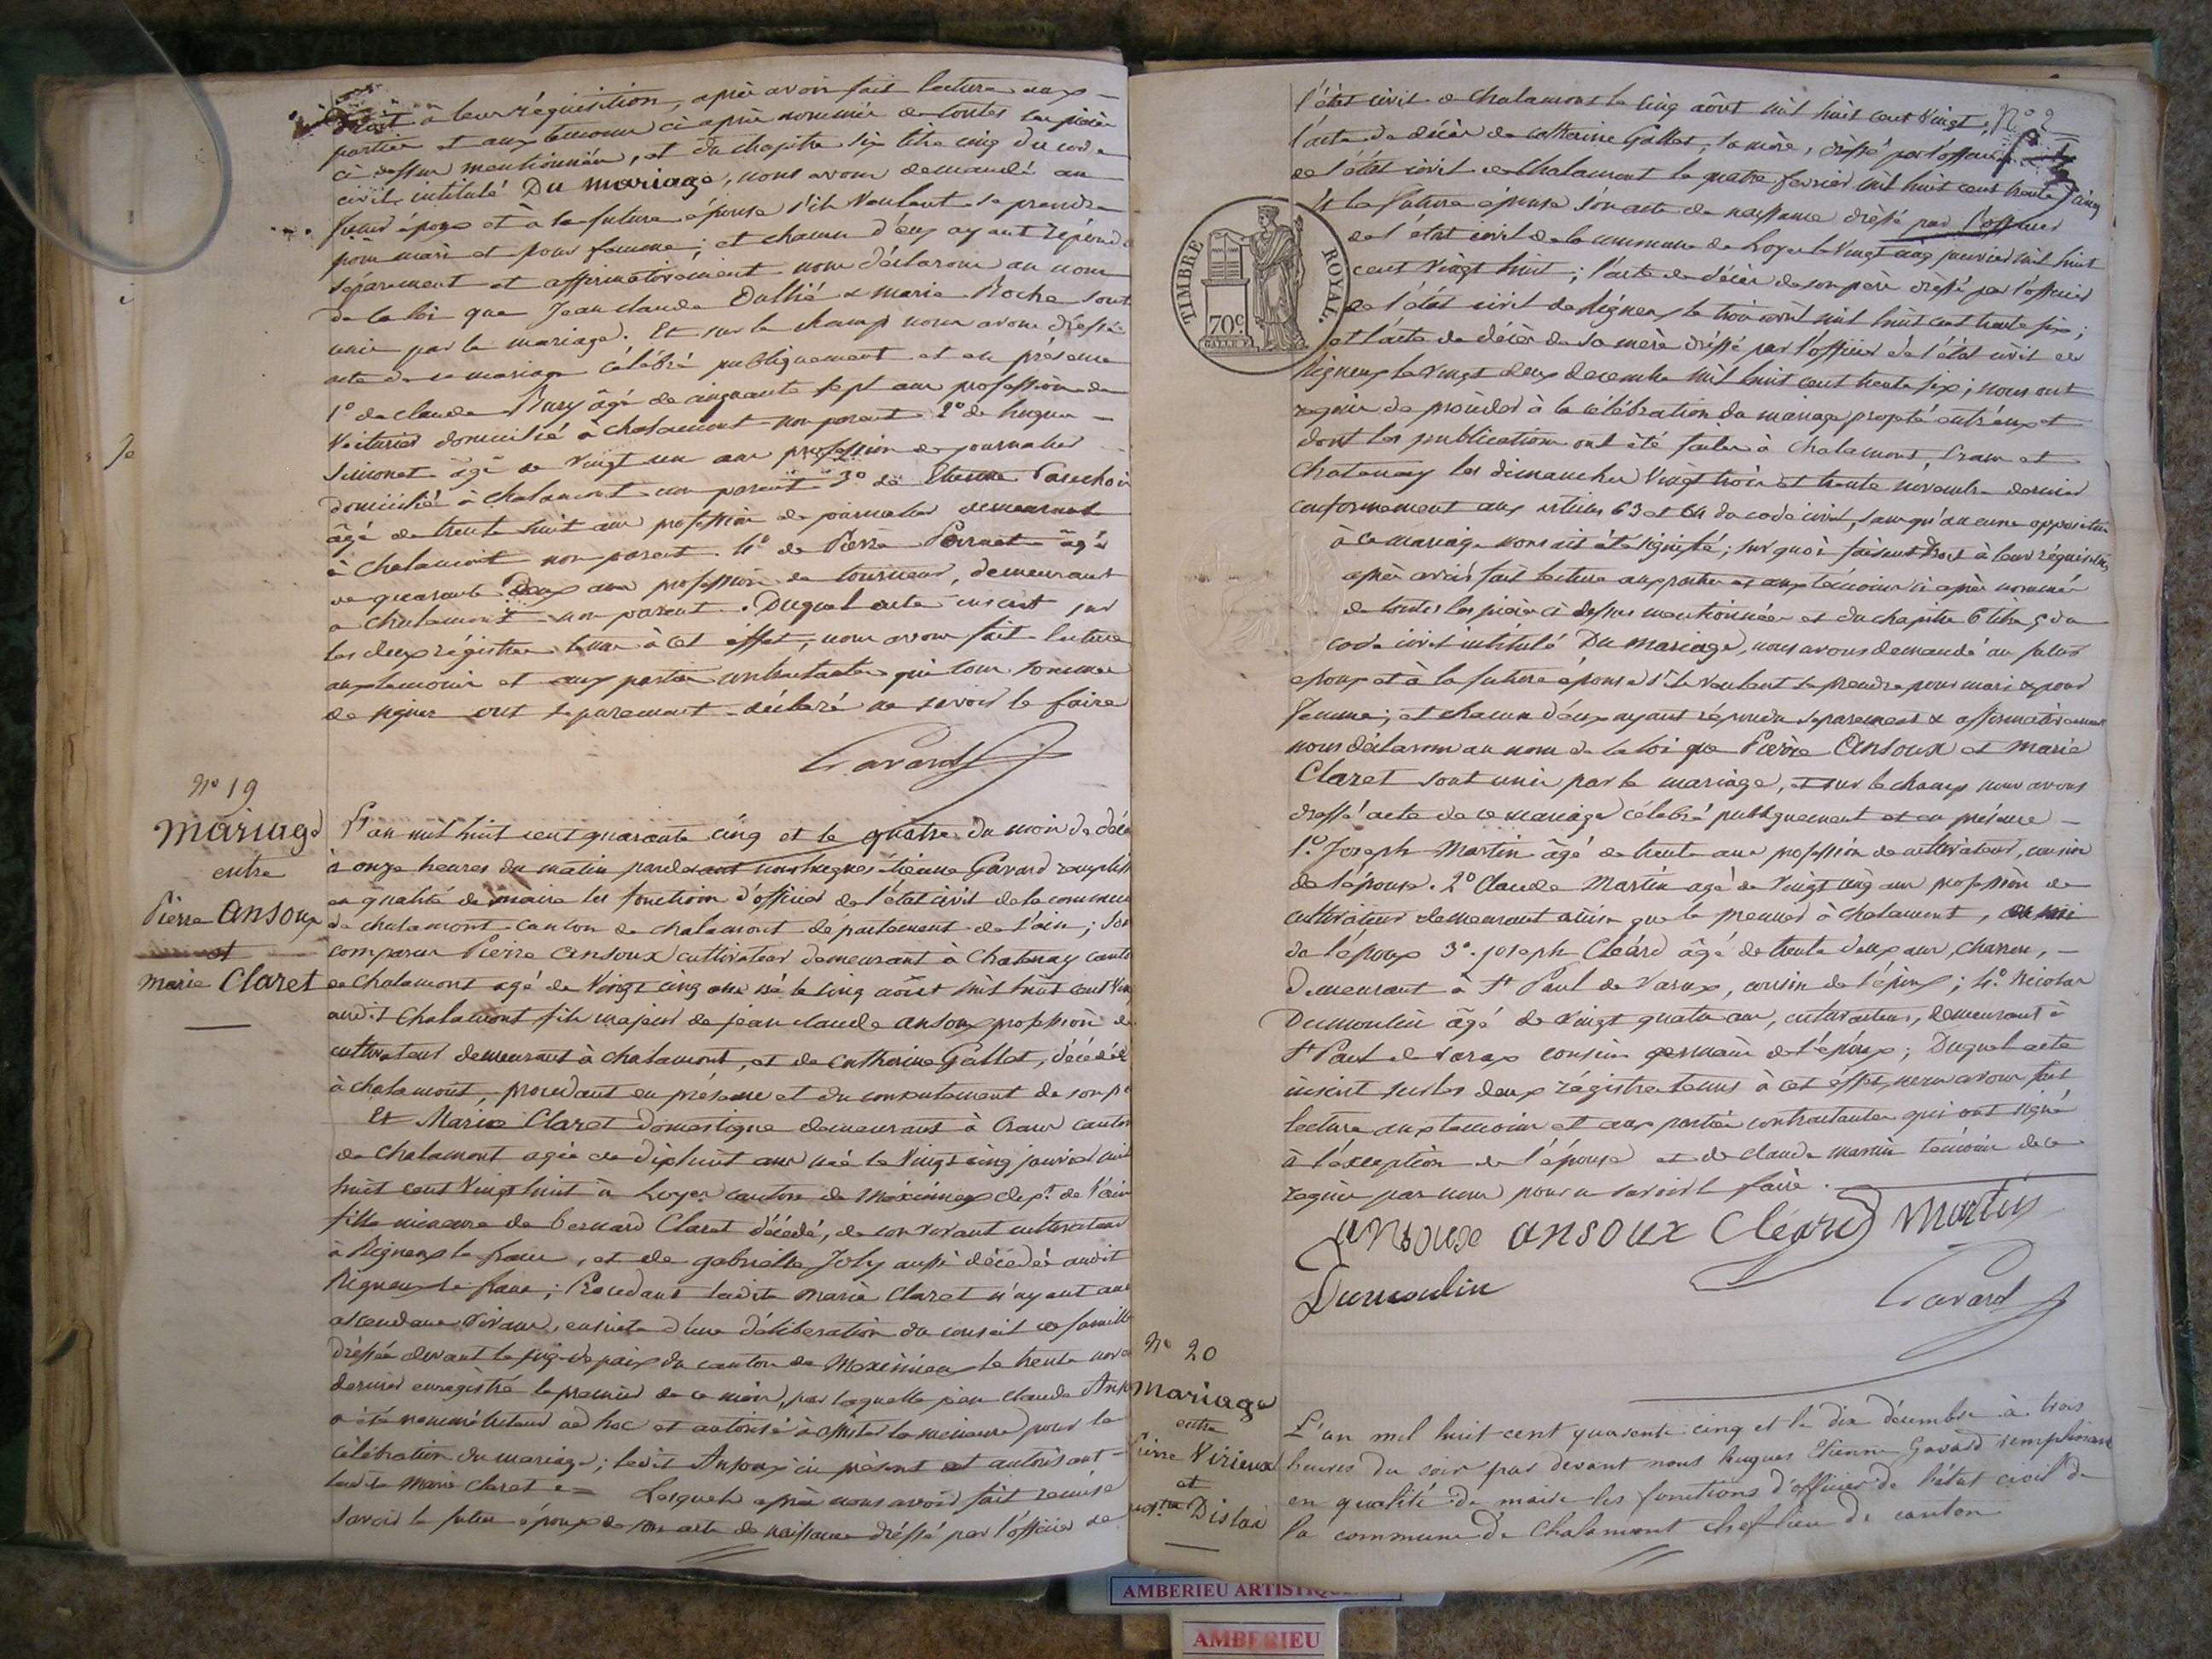 Droit à leur réquisition, après avoir fait lecture aux
parties et aux temoins ci après nommés de toutes les pièces
ci dessus mentionnées, et du chapitre six titre cinq du code
civil, intitulé Du mariage, nous avons demandé au
futur époux et à la future épouse s'ils veulent se prendre
pour mari et pour femme; et chacun d'eux ayant répondu
séparement et affirmativement nous déclarons au nom
de la loi que Jean claude Dullié & marie Roche sont
unis par le mariage. Et sur le champ nous avons dressé
acte de ce mariage célébré publiquement et en présence
1º de claude âgé de cinquante sept ans profession de
Voiturier domicilié à chalamont non parent 2º de hugues
Simonet âgé de Vingt un ans profession de journalier
domicilié à chalamont non parent 3º de Etienne
âgé de trente huit ans profession de journalier demeurant
à chalamont non parent. 4º de Pierre Perret âgé
de quarante Deux ans profession de tourneur, demeurant
a chalamont non parent. Duquel acte inscrit sur
les deux régistres tenus à cet effet, nous avons fait lecture
aux temoins et aux parties contractantes qui tous sommés
de signer ont séparement déclaré ne savoir le faire
Gavard
Nº 19
Mariage
entre
Pierre Ansoux
et
Marie Claret
L'an mil huit cent quarante cinq et le quatre du mois de déce
à onze heures du matin pardevant nous hugues étienne Gavard rempliss
en qualité de maire les fonctions d'officier de l'état civil de la commune
de chalamont canton de chalamont département de l'ain; Son
comparus Pierre Ansoux cultivateur demeurant à Chatenay canto
de Chalamont agé de Vingt cinq ans né le cinq août mil huit cent Vin
audit Chalamont fils majeur de jean claude ansoux profession de
cultivateur demeurant à chalamont, et de Catherine Gallet, décédée
à chalamont, procedant en présence et du consentement de son pè
Et Marie Claret domestique demeurant à Crans canton
de Chalamont agée de dix huit ans née le Vingt cinq janvier mil
huit cent Vingt huit à Loyes canton de Méximieux dept. de l'ain
fille mineure de bernard Claret décédé, de son vivant cultivateur
à Rigneux le franc, et de gabrielle Joly aussi décédée audit
Rigneux le franc; Procedant ladite Marie Claret n'ayant auc
ascendans Vivans, ensuite d'une déliberation du conseil de famille
dressée devant le juge de paix du canton de Meximieux le trente nove
dernier enregistré le premier de ce mois, par laquelle jean claude Anso
a été nommé tuteur ad hoc et autorisé à assister la mineure pour la
célébration du mariage; ledit Ansoux ici présent et autorisant
ladite Marie Claret Lesquels après nous avoir fait remise
Savoir le futur époux de son acte de naissance dréssé par l'officier de
Nº 2
l'état civil de Chalamont le cinq août mil huit cent Vingt;
l'acte de décès de catherine Gallet, sa mère, dressé par l'officier
de l'état civil de Chalamont le quatre fevrier mil huit cent trente cinq
Et la future épouse son acte de naissance dréssé par l'officier
de l'état civil de la commune de Loyes le Vingt cinq janvier mil huit
cent Vingt huit; l'acte de décès de son père dréssé par l'officier
de l'état civil de Rigneux le trois avril mil huit cent trente six;
et l'acte de décès de sa mère dréssé par l'officier de l'état civil de
Rigneux le Vingt deux decembre mil huit cent trente six; nous ont
requis de procéder à la célébration du mariage projeté entr'eux et
dont les publications ont été faites à Chalamont, Crans et
Chatenay les dimanches Vingt trois et trente novembre dernier
conformement aux articles 63 et 64 du code civil, sans qu'aucune opposition
à ce mariage nous ait été signifié; sur quoi faisant Droit à leur réquisition,
après avoir fait lecture aux parties et aux témoins ci après nommés
de toutes les pièces ci dessus mentionnées et du chapitre 6 titre 5 du
code civil intitulé Du mariage, nous avons demandé au futur
époux et à la future épouse s'ils veulent se prendre pour mari & pour
femme; et chacun d'eux ayant répondu séparement & affirmativement
nous déclarons au nom de la loi que Pierre Ansoux et Marie
Claret sont unis par le mariage, et sur le champ nous avons
dressé acte de ce mariage célébré publiquement et en présence
1º. Joseph Martin âgé de trente ans profession de cultivateur, cousin
de l'épouse. 2º Claude Martin agé de Vingt cinq ans profession de
cultivateur demeurant ainsi que le premier à chalamont,
de l'époux 3º. joseph Cléard âgé de trente deux ans, charron,
demeurant à St Paul de Varax, cousin de l'époux; 4º. Nicolas
Dumoulin âgé de vingt quatre ans, cultivateur, demeurant à
St Paul de Varax cousin germain de l'époux; Duquel acte
inscrit sur les deux régistres tenus à cet effet, nous avons fait
lecture aux temoins et aux parties contractantes qui ont signé
à l'exception de l'épouse et de claude martin témoin de ce
requis par nous pour ne savoir le faire.
ansoux ansoux Cléard Martin
Dumoulin
Gavard
TIMBRE ROYAL.
70c
Nº 20
Mariage
entre
Pierre Virieux
et
Dislai
L'an mil huit cent quarante cinq et le dix décembre à trois
heures du soir par devant nous hugues Etienne Gavard remplissant
en qualité de maire les fonctions d'officier de l'état civil de
la commune de Chalamont chef lieu de canton
AMBERIEU ARTISTIQUE
AMBERIEU